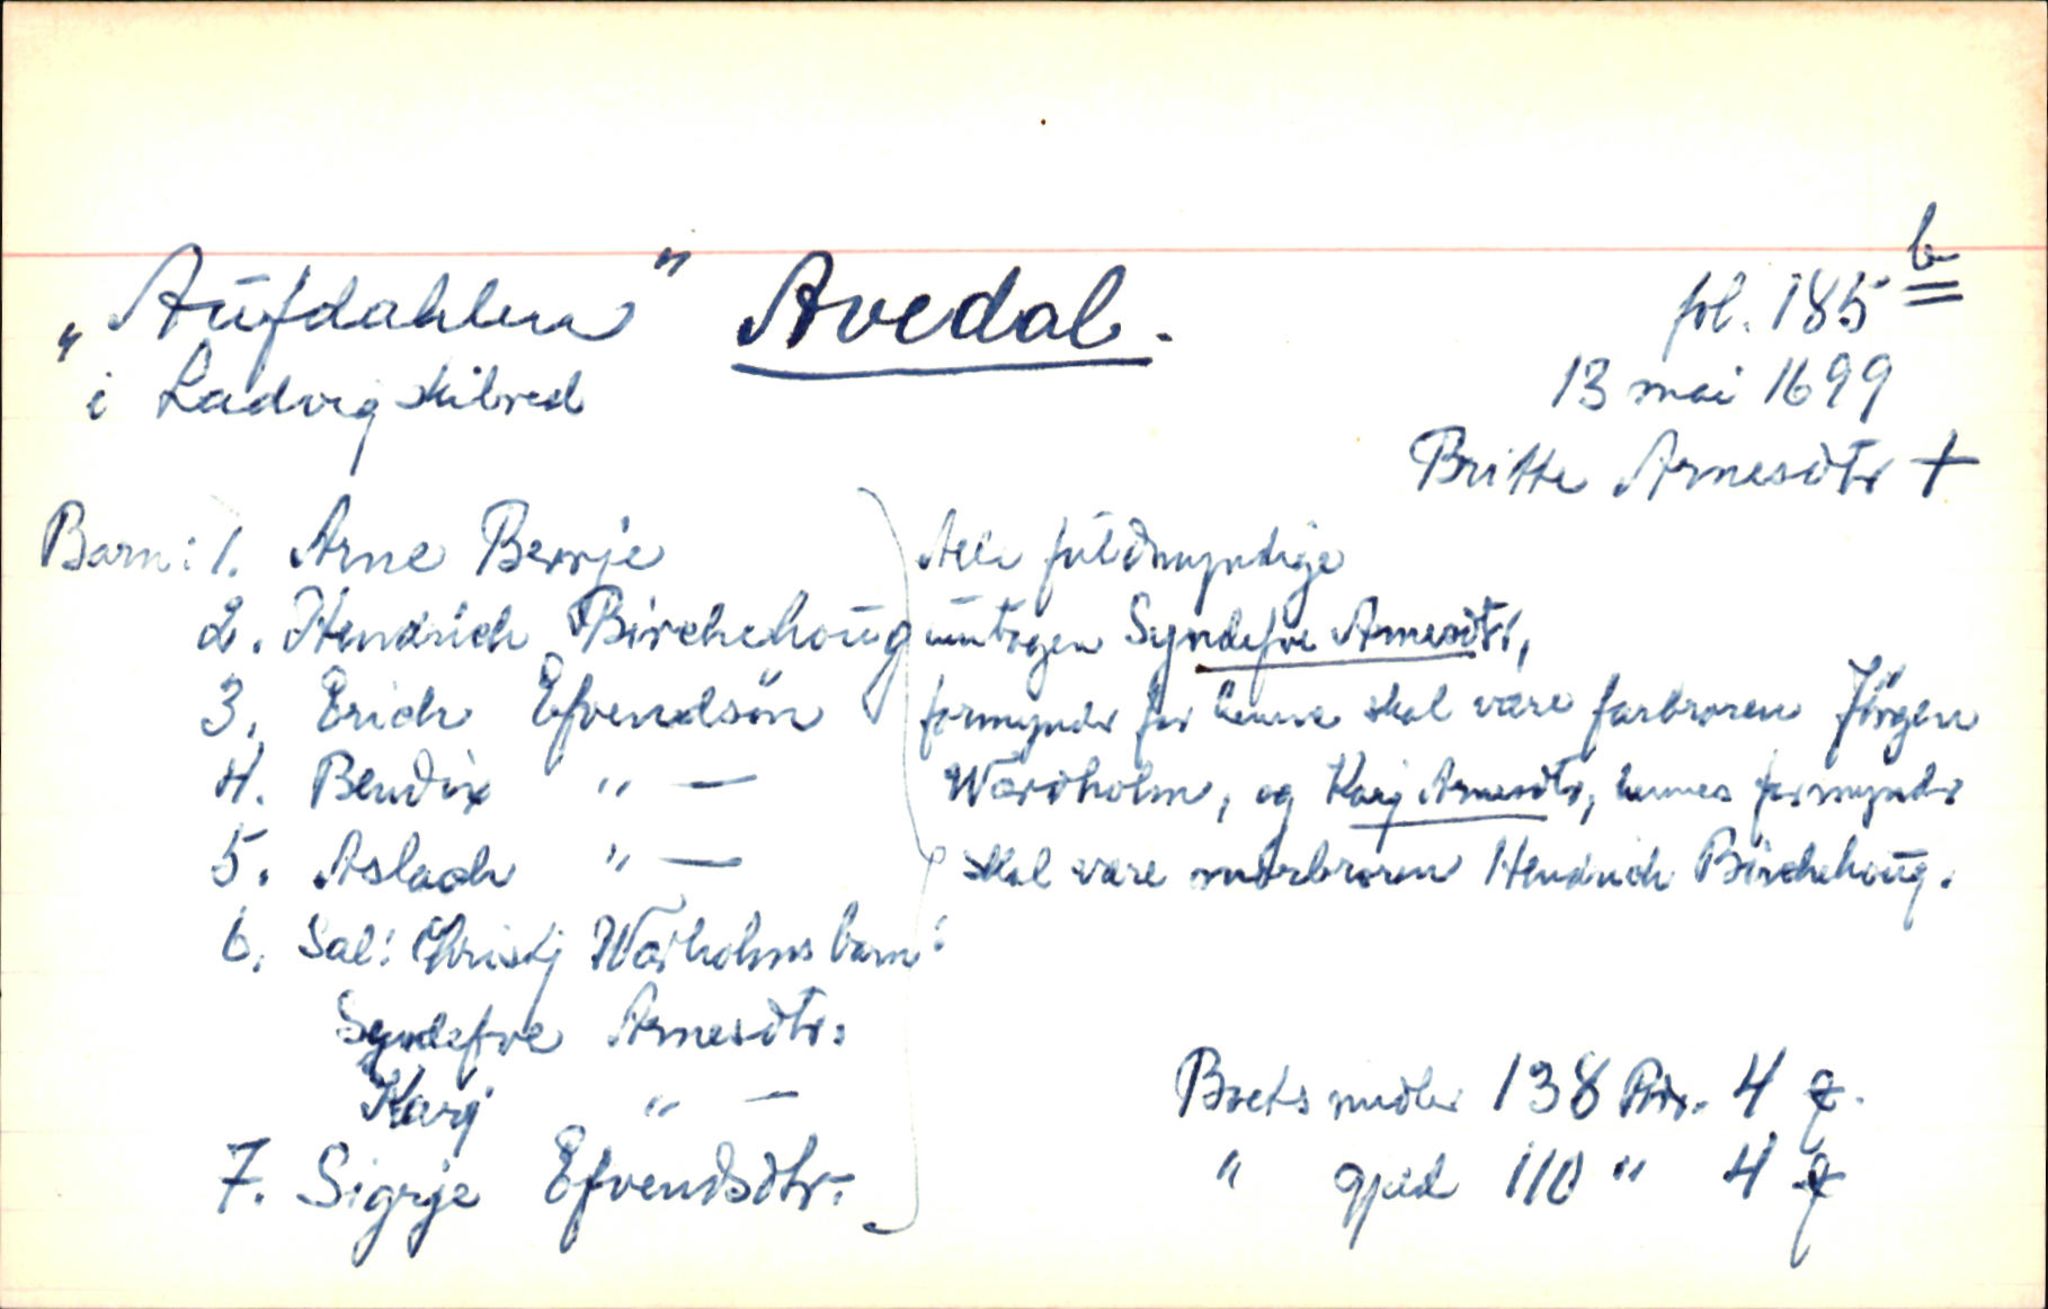 „Aufdahlen" Avedal. fol. 185 b
i Ladvig skibred 13 mai 1699
Britte Arnesdtr +
Barn: 1. Arne Berrje
2. Hendrich Birchehoug
3. Erich Efvendsön
4. Bendix " —
5. Aslach " —
6. Sal: Christj Warholms barn:
Syndefve Arnesdtr.
Karj " —
7. Sigrje Efvendsdtr.
Alle fuldmyndige
untagen Syndefve Arnesdtr,
formynder for henne skal være farbroren Jörgen
Wardholm, og Karj Arnesdtr, hennes formynder
skal være morbroren Hendrich Birchehoug.
Boets midler 138 Rdr. 4
" gjeld 110 " 4